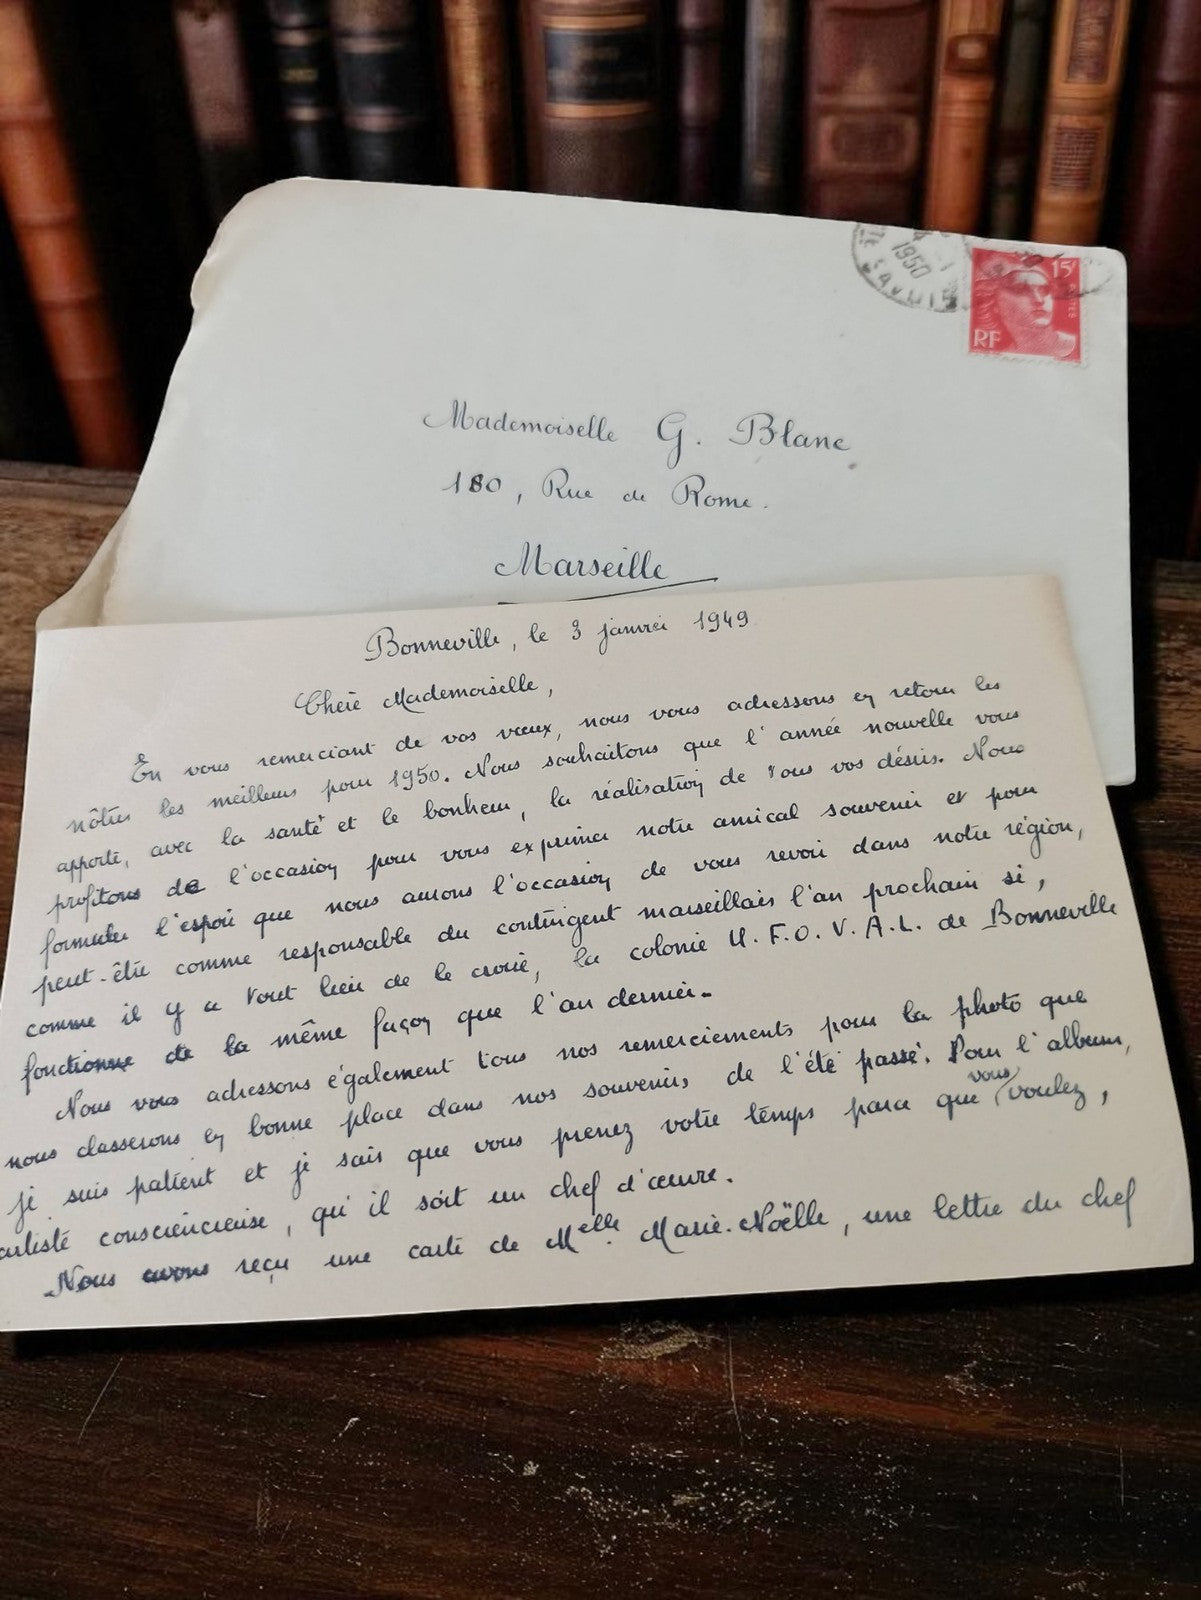 1950
SAVOIE
15F
POSTES
RF
Mademoiselle G. Blanc
180, Rue de Rome.
Marseille
Bonneville, le 3 janvier 1949
Chère Mademoiselle,
En vous remerciant de vos vœux, nous vous adressons en retour les
nôtres les meilleurs pour 1950. Nous souhaitons que l'année nouvelle vous
apporte, avec la santé et le bonheur, la réalisation de tous vos désirs. Nous
profitons de l'occasion pour vous exprimer notre amical souvenir et pour
formuler l'espoir que nous aurons l'occasion de vous revoir dans notre région,
peut-être comme responsable du contingent marseillais l'an prochain si,
comme il y a tout lieu de le croire, la colonie U.F.O.V.A.L. de Bonneville
fonctionne de la même façon que l'an dernier.
Nous vous adressons également tous nos remerciements pour la photo que
nous classerons en bonne place dans nos souvenirs de l'été passé. Pour l'album,
je suis patient et je sais que vous prenez votre temps parce que vous voulez,
artiste consciencieuse, qu'il soit un chef d'œuvre.
Nous avons reçu une carte de Melle. Marie-Noëlle, une lettre du chef